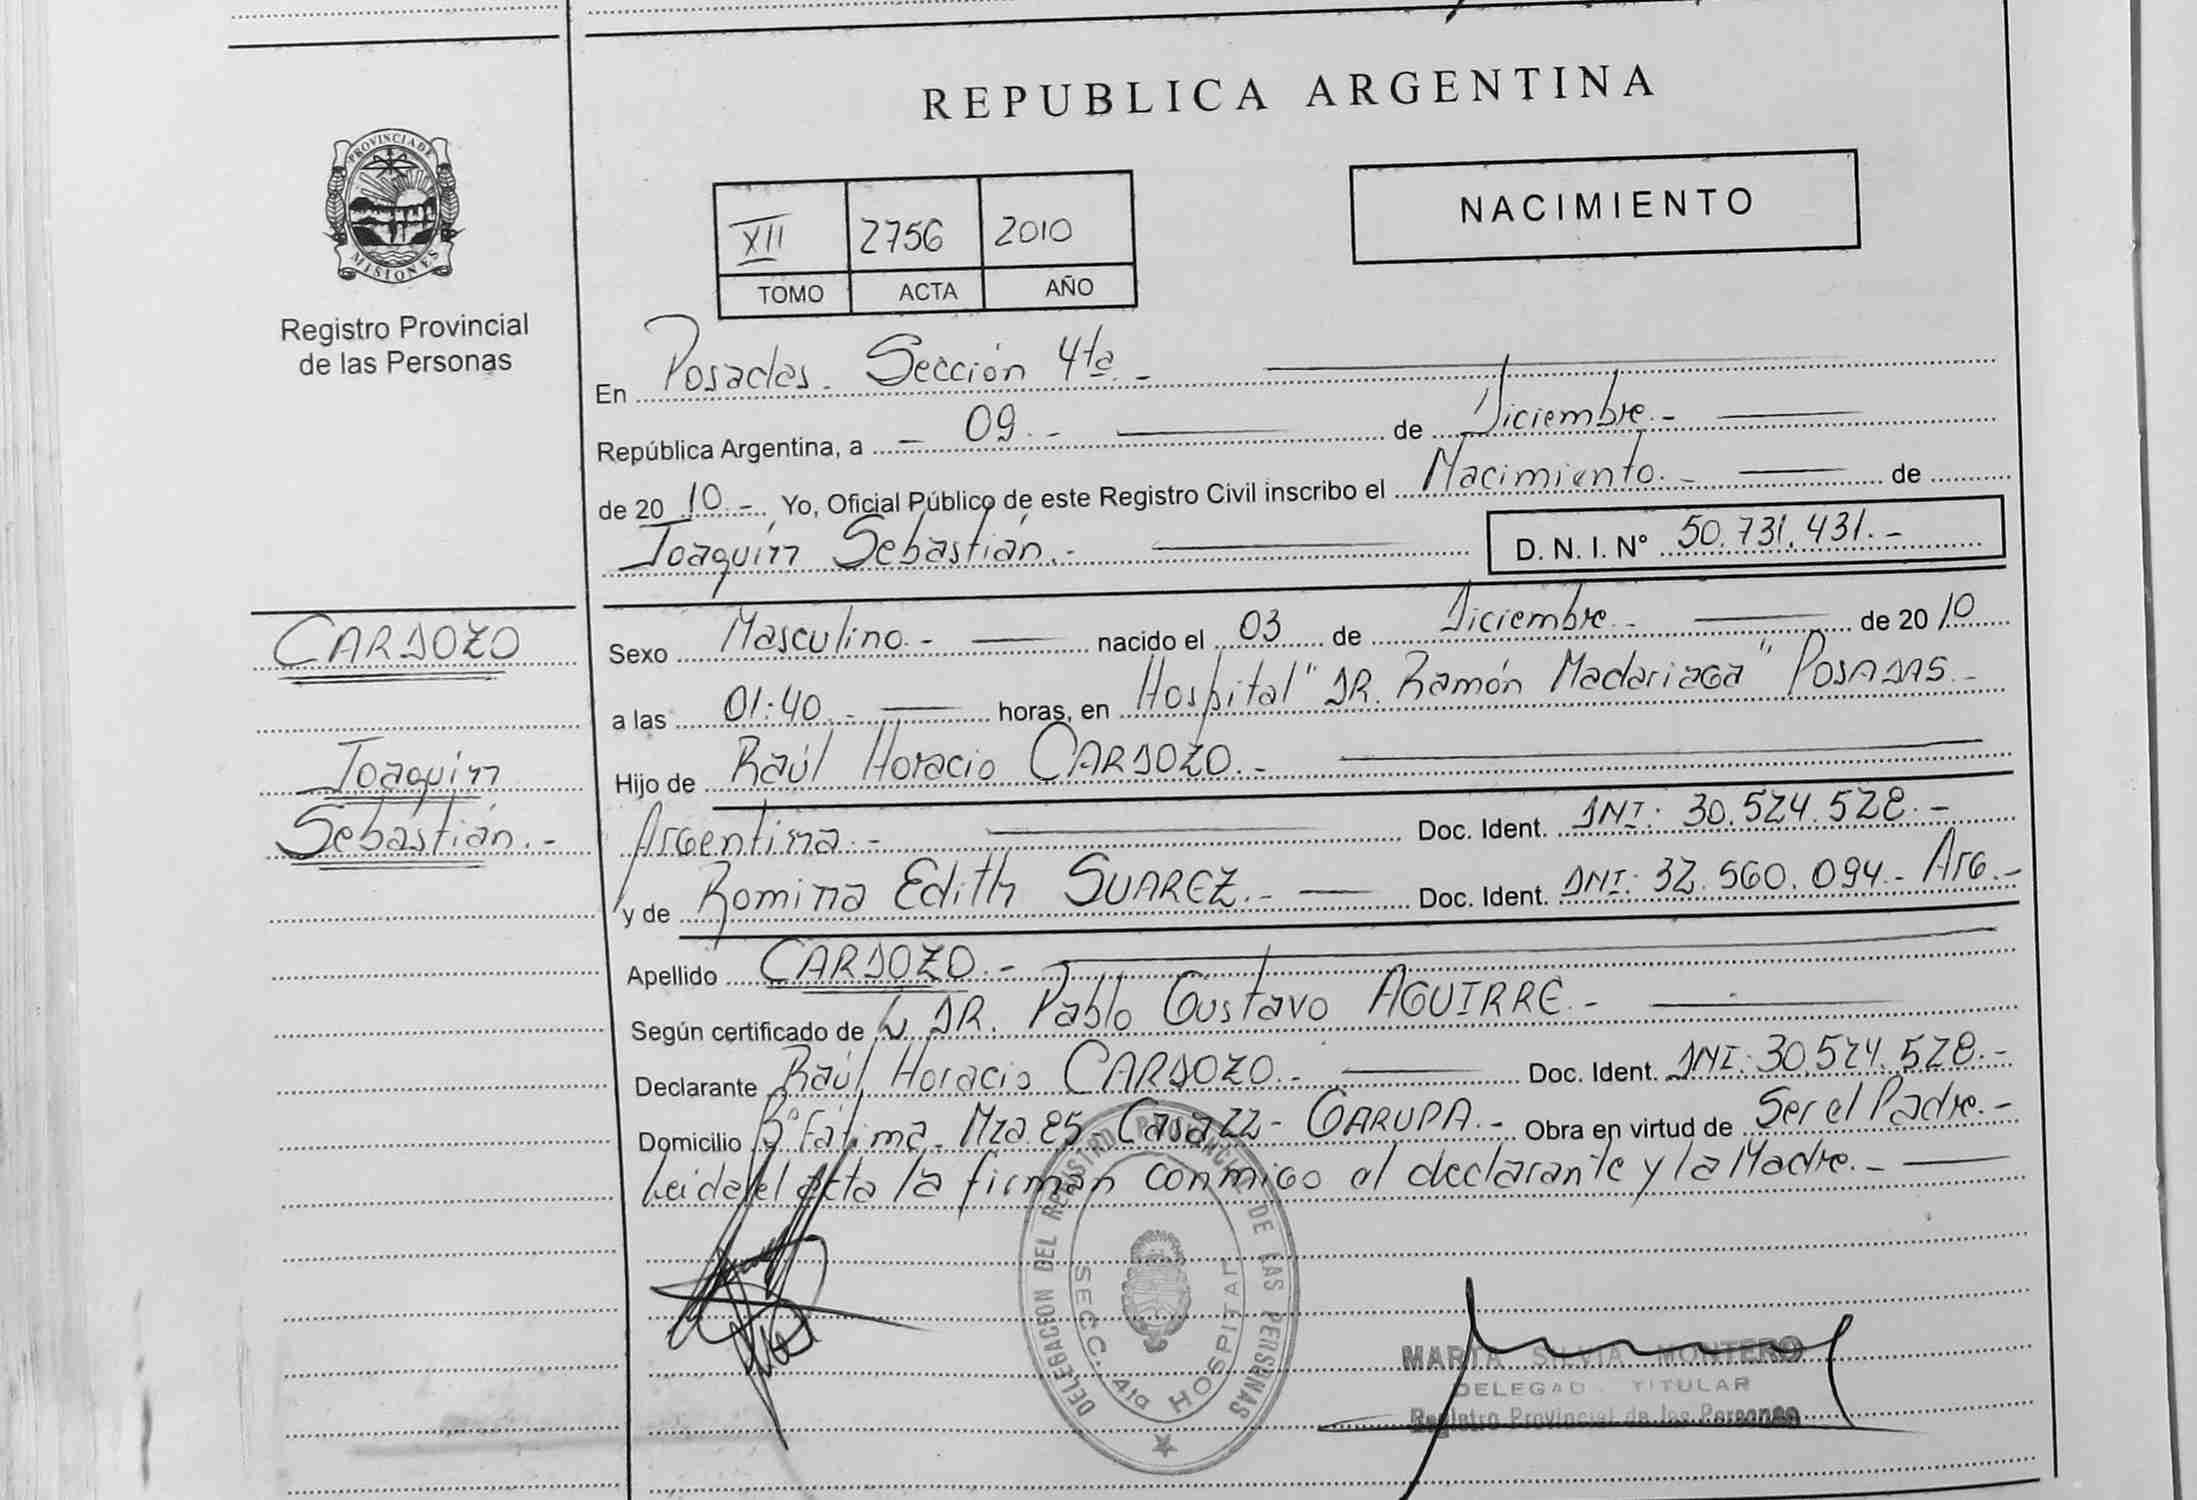 REPUBLICA ARGENTINA
PROVINCIA DE MISIONES
Registro Provincial
de las Personas
XII 2756 2010
TOMO ACTA AÑO
NACIMIENTO
En Posadas. Sección 4ta.-
República Argentina, a - 09.- de Diciembre.-
de 20 10.- Yo, Oficial Público de este Registro Civil inscribo el Nacimiento.- de
Joaquín Sebastián.- D. N. I. Nº 50.731.431.-
CARDOZO
Joaquín
Sebastián.-
Sexo Masculino.- nacido el 03 de Diciembre.- de 20 10
a las 01:40.- horas, en Hospital "DR. Ramón Madariaga" POSADAS.-
Hijo de Raúl Horacio CARDOZO.-
Argentina.- Doc. Ident. DNI: 30.524.528.-
y de Romina Edith SUAREZ.- Doc. Ident. DNI: 32.560.094.- Arg.-
Apellido CARDOZO.-
Según certificado de DR. Pablo Gustavo AGUIRRE.-
Declarante Raúl Horacio CARDOZO.- Doc. Ident. DNI: 30.524.528.-
Domicilio Bº Fátima. Mza 25 Casa 22- GARUPA.- Obra en virtud de Ser el Padre.-
Leida el acta la firman conmigo el declarante y la Madre.-
DELEGACION DEL REGISTRO PROVINCIAL DE LAS PERSONAS
SECC. 4ta HOSPITAL
MARTA SILVIA MONTERO
DELEGADO TITULAR
Registro Provincial de las Personas